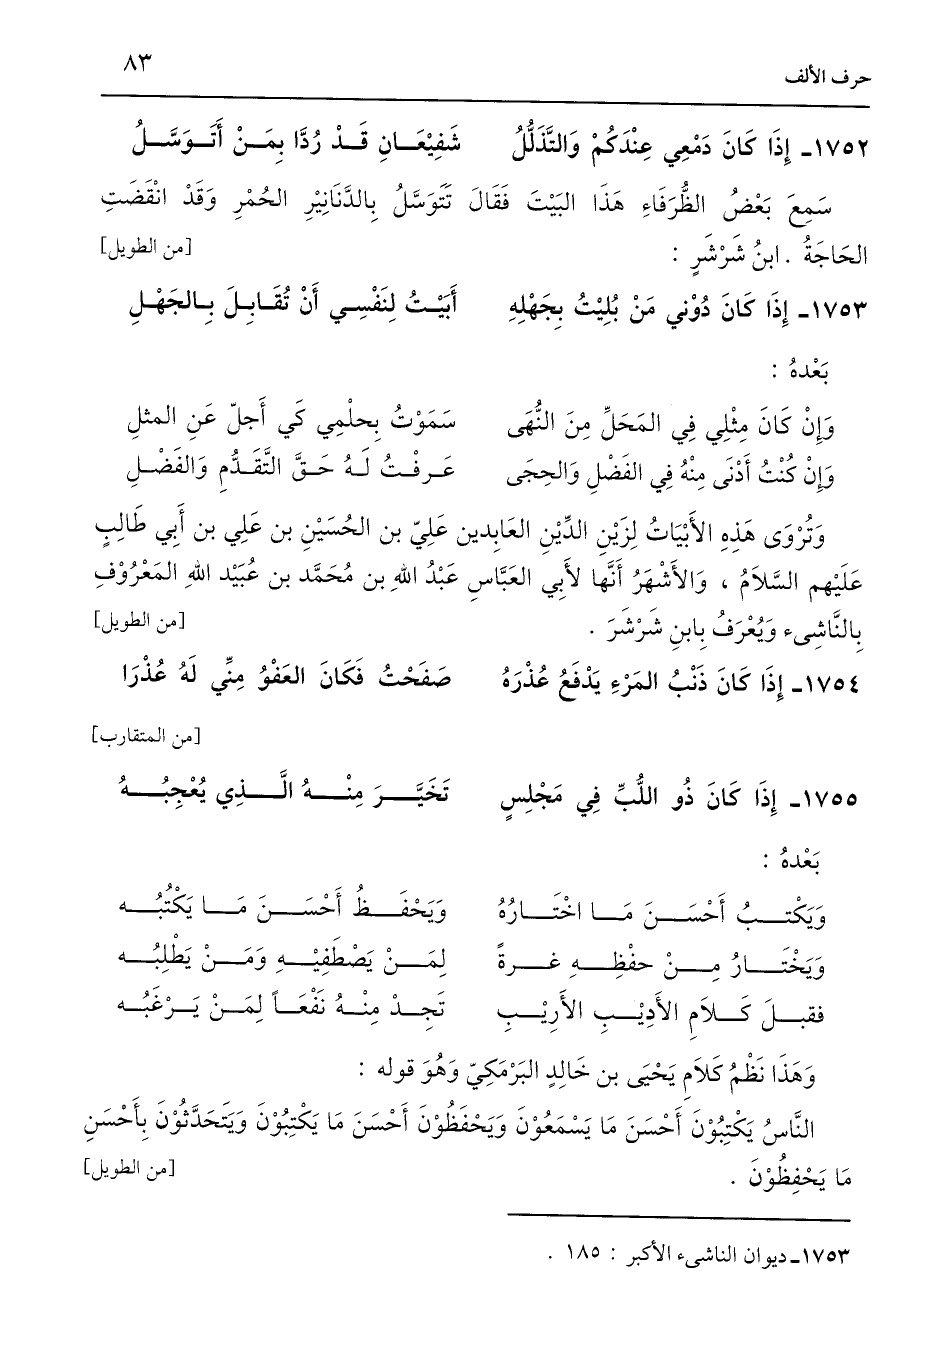 حرف الألف ٨٣
١٧٥٢ـ إِذَا كَانَ دَمْعِي عِنْدَكُمْ وَالتَّذَلُّلُ شَفِيْعَـانِ قَـدْ رُدَّا بِمَـنْ أَتَـوَسَّـلُ
سَمِعَ بَعْضُ الظُّرَفَاءِ هَذَا البَيْتَ فَقَالَ تَتَوَسَّلُ بِالدَّنَانِيْرِ الحُمْرِ وَقَدْ انْقَضَتِ
الحَاجَةُ . ابنُ شَرْشَرٍ : [من الطويل]
١٧٥٣ـ إِذَا كَانَ دُوْنِي مَنْ بُلِيْتُ بِجَهْلِهِ أَبَيْـتُ لِنَفْسِـي أَنْ تُقَـابِلَ بِـالجَهْـلِ
بَعْدهُ :
وَإِنْ كَانَ مِثْلِي فِي المَحَلِّ مِنَ النُّهَى سَمَوْتُ بِحلْمِي كَي أَجلّ عَنِ المثلِ
وَإِنْ كُنْتُ أَدْنَى مِنْهُ فِي الفَضْلِ وَالحِجَى عَـرفْـتُ لَـهُ حَـقَّ التَّقَـدُّمِ وَالفَضْـلِ
وَتُرْوَى هَذِهِ الأَبْيَاتُ لِزَيْنِ الدِّيْنِ العَابِدين عَلِيّ بن الحُسَيْنِ بن عَلِي بن أَبِي طَالِبٍ
عَلَيْهم السَّلاَمُ ، وَالأَشْهَرُ أَنَّها لأَبِي العَبَّاسِ عَبْدُ اللهِ بن مُحَمَّد بن عُبَيْد اللهِ المَعْرُوْفِ
بِالنَّاشِىء وَيُعْرَفُ بِابنِ شَرْشَرَ . [من الطويل]
١٧٥٤ـ إِذَا كَانَ ذَنْبُ المَرْءِ يَدْفَعُ عُذْرَهُ صَفَحْتُ فَكَانَ العَفْوُ مِنِّي لَهُ عُذْرَا
[من المتقارب]
١٧٥٥ـ إِذَا كَانَ ذُو اللُّبِّ فِي مَجْلِسٍ تَخَيَّـــرَ مِنْـــهُ الَّـــذِي يُعْجِبُـــهُ
بَعْدهُ :
وَيَكْتـــبُ أَحْســـنَ مَـــا اخْتَـــارُهُ وَيَحْفَـــظُ أَحْسَـــنَ مَـــا يَكْتُبُـــه
وَيَخْتَـــارُ مِـــنْ حفْظِـــهِ غـــرةً لِمَـــنْ يَصْطَفِيْـــهِ وَمَـــنْ يَطْلِبُـــه
فقبـــلَ كَـــلاَمِ الأَدِيْـــبِ الأَرِيْـــبِ تَجِـــدْ مِنْـــهُ نَفْعَـــاً لِمَـــنْ يَـــرْغَبُـــه
وَهَذَا نَظْمُ كَلاَمِ يَحْيَى بن خَالِدٍ البَرْمَكِيّ وَهُوَ قوله :
النَّاسُ يَكْتِبُوْنَ أَحْسَنَ مَا يَسْمَعُوْنَ وَيَحْفَظُوْنَ أَحْسَنَ مَا يَكْتِبُوْنَ وَيَتَحَدَّثُوْنَ بِأَحْسَنِ
مَا يَحْفِظُوْنَ . [من الطويل]
١٧٥٣ـ ديوان الناشىء الأكبر : ١٨٥ .